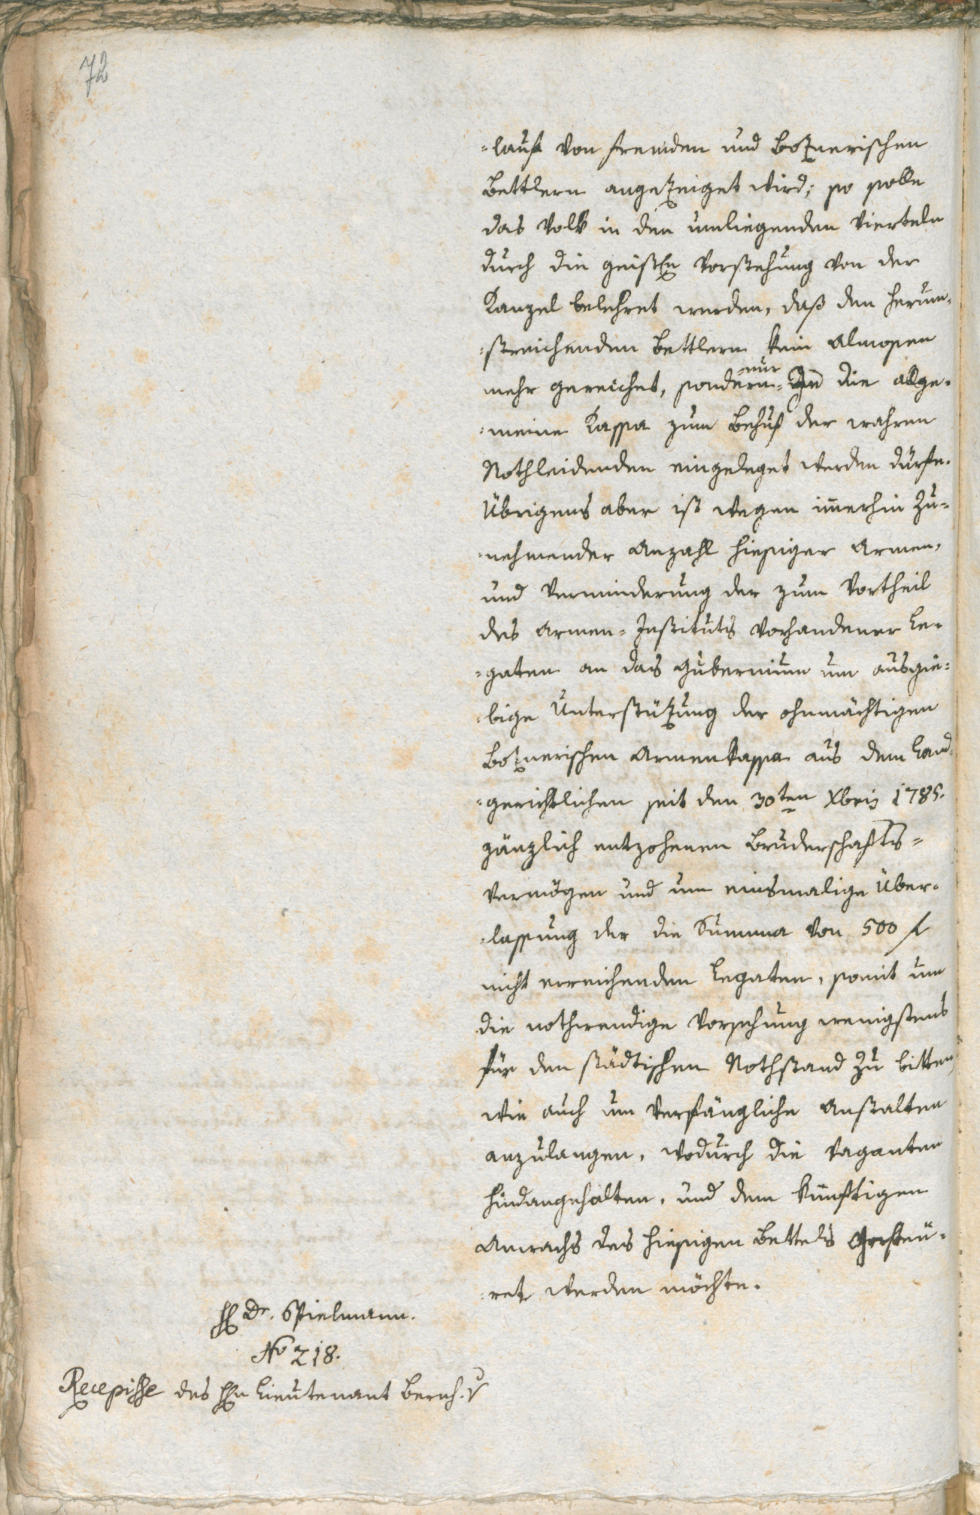 72
-lauf von fremden und Botznerischen
Bettlern angezeiget wird; so solle
das Volk in den umliegenden Vierteln
durch die geistln Vorstehung von der
Kanzel belehret werden, daß den herum-
-streichenden Bettlern kein Almosen
nur
mehr gereichet, sondern In die allge-
-meine Kassa zum Behuf der wahren
Nothleidenden eingeleget werden dürfe.
Übrigens aber ist wegen im̅erhin Zu-
-nehmender Anzahl hiesiger Armen,
und Verminderung der zum Vortheil
des Armen-Instituts vorhandener Le-
-gaten an das Gubernium um ausgie-
-bige Unterstützung der ohnmächtigen
Botznerischen Armenkassa aus dem Land-
-gerichtlichen seit den 30ten Xbris 1785.
gänzlich entzohenen Bruderschafts-
Vermögen und um einsmalige Über-
-lassung der die Summa von 500 f
nicht erreichenden Legaten, somit um
die nothwendige Vorsehung wenigstens
für den städtischen Nothstand zu bitten,
wie auch um verfängliche Anstalten
anzulangen, wodurch die Vaganten
hindangehalten, und dem künftigen
Anwachs des hiesigen Bettels gesteü-
-ret werden möchte.
H Dr. Spielmann.
No 218.
Recepisse des Hn Lieutenant Bernh. v